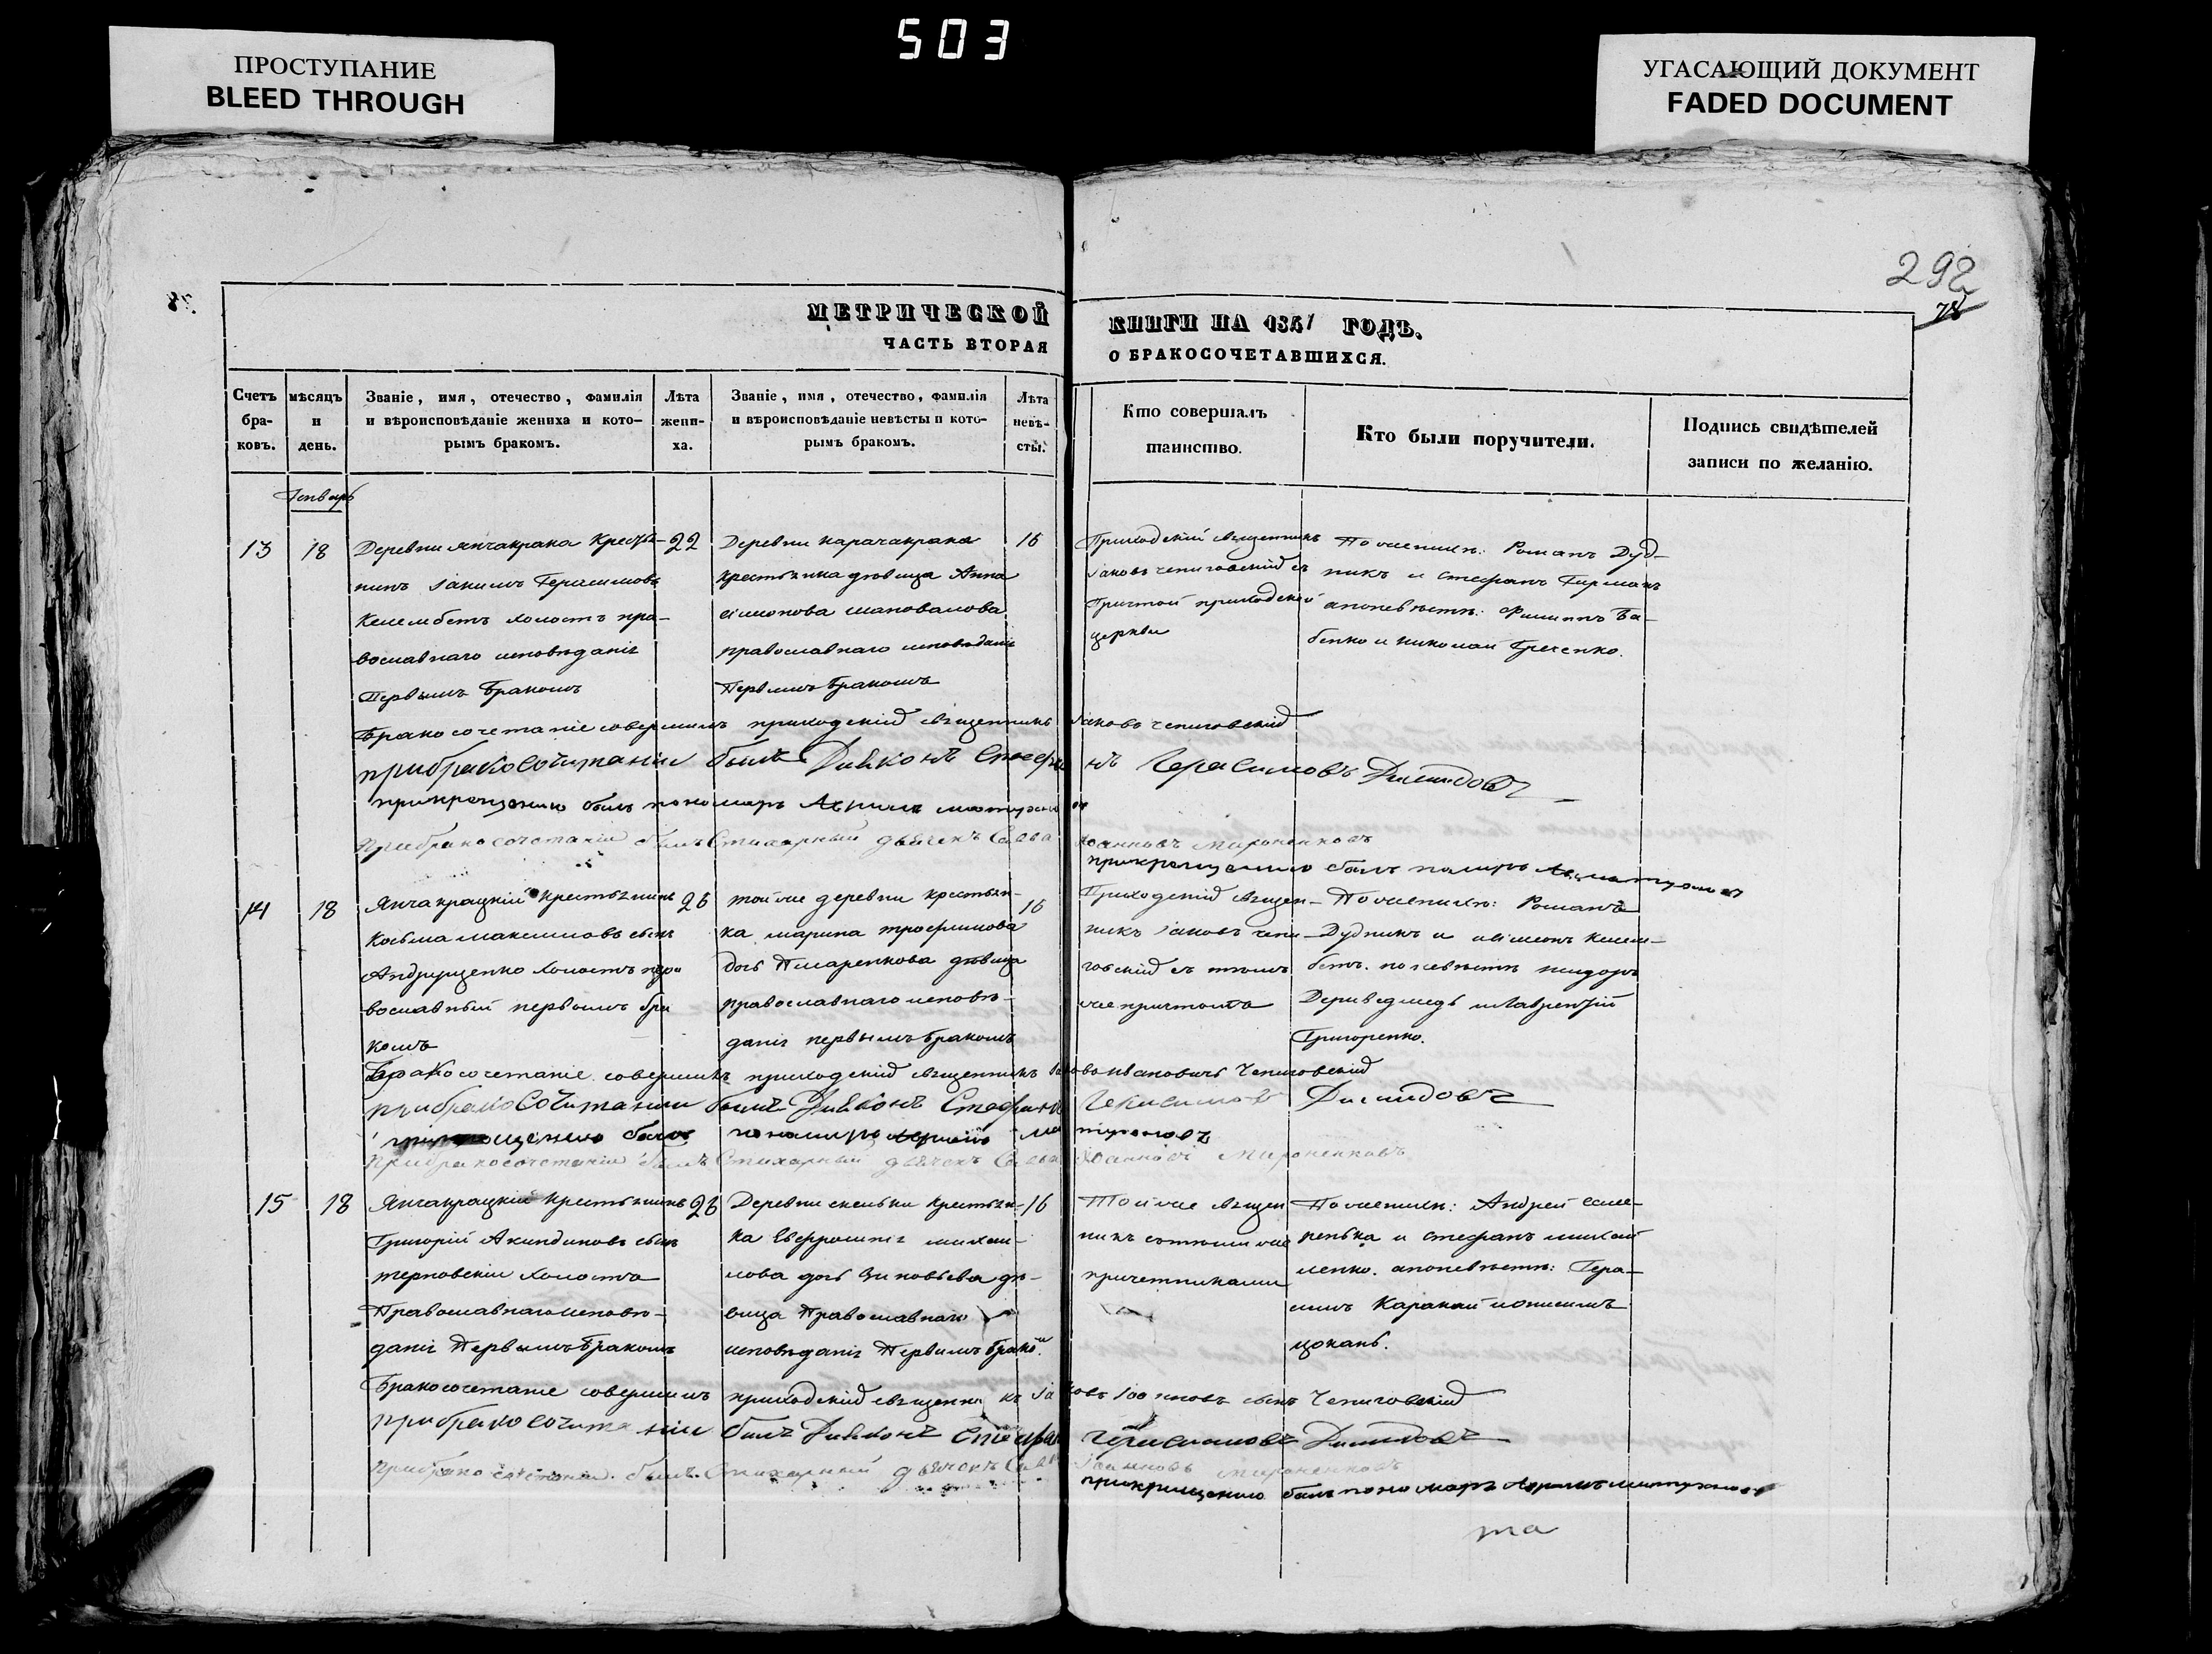 503
ПРОСТУПАНИЕ
BLEED THROUGH
УГАСАЮЩИЙ ДОКУМЕНТ
FADED DOCUMENT
292
78
МЕТРИЧЕСКОЙ КНИГИ НА 1841 ГОДЪ.
ЧАСТЬ ВТОРАЯ О БРАКОСОЧЕТАВШИХСЯ.
Счетъ бра-ковъ.
мѣсяцъ и день.
Званіе, имя, отечество, фамилія
и вѣроисповѣданіе жениха и кото-
рымъ бракомъ.
Лѣта жени-ха.
Званіе, имя, отечество, фамилія
и вѣроисповѣданіе невѣсты и кото-
рымъ бракомъ.
Лѣта невѣ-сты.
Кто совершалъ
таинство.
Кто были поручители.
Подпись свидѣтелей
записи по желанію.
Генварь
13
18
Деревни Янчакрака Кресть-
нинъ Іакимъ Герасимовъ
Келембетъ холостъ пра-
вославнаго исповѣданія
Первымъ Бракомъ
22
Деревни Карачакрака
крестьянка дѣвица Анна
Симонова Шаповалова
православнаго исповѣданія
Первымъ Бракомъ
16
Приходскій священникъ
Іаковъ Чепиговскій съ
Причтомъ приходской
церкви
По женихѣ: Романъ Дуд-
никъ и Стефанъ Гирманъ
а по невѣстѣ: Филиппъ Ба-
бенко и Николай Гресенко.
Бракосочетаніе совершилъ приходскій священникъ Іаковъ Чепиговскій
при бракосочитаніи былъ Діяконъ Стефанъ Герасимовъ Димидовъ
при бракосочетаніи былъ Стихарный дьячекъ Савва Іоанновъ Мироненковъ
14
18
Янчакрацкій крестьянинъ
Косьма Максимовъ сынъ
Андрущенко холостъ пра
вославный первымъ бра
комъ
26
той же деревни крестьян-
ка Марина Трофимова
дочь Писаренкова дѣвица
православнаго исповѣ-
данія первымъ бракомъ
16
Приходскій священ-
никъ Іаковъ Чепи-
говскій съ тѣмъ
же причтомъ
По женихѣ: Романъ
Дудникъ и Симеонъ Келем-
бетъ. по невѣстѣ Исидоръ
Дериведмедь и Лаврентій
Григоренко.
Бракосочетаніе совершилъ приходскій священникъ Іаковъ Ивановичъ Чепиговскій
при бракосочитаніи былъ Діяконъ Стефанъ Герасимовъ Димидовъ
при бракосочетаніи былъ Стихарный дьячекъ Савва Іоанновъ Мироненковъ
15
18
Янчакрацкій крестьянинъ
Григорій Акиндиновъ сынъ
Терновскій холостъ
Православнаго исповѣ-
данія Первымъ Бракомъ
Деревни Скельки крестьян-
ка Евфросинія Михаи-
лова дочь Зиновьева дѣ-
вица Православнаго
исповѣданія Первымъ Брако.
16
Той же священ
никъ съ тѣми же
причетниками
По женихѣ: Андрей
и Стефанъ Михай
ленко. а по невѣстѣ: Гера-
симъ
Бракосочетаніе совершилъ приходскій священникъ Іаковъ Іоанновъ сынъ Чепиговскій
при бракосочитаніи былъ Діяконъ Стефанъ Герасимовъ Димидовъ
при бракосочетаніи былъ Стихарный дьячекъ Савва Іоанновъ Мироненковъ
та